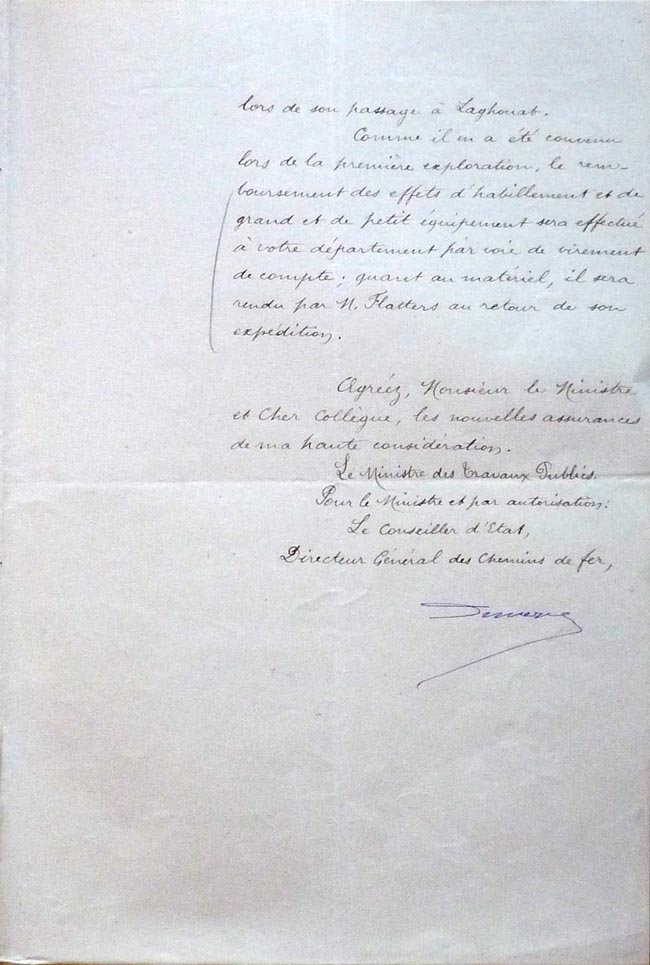 lors de son passage à Laghouat.
Comme il en a été convenu
lors de la première exploration, le rem-
boursement des effets d'habillement et de
grand et de petit équipement sera effectué
à votre département par voie de virement
de compte; quant au matériel, il sera
rendu par M. Flatters au retour de son
expédition.
Agréez, Monsieur le Ministre
et Cher Collègue, les nouvelles assurances
de ma haute considération.
Le Ministre des Travaux Publics.
Pour le Ministre et par autorisation:
Le Conseiller d'Etat,
Directeur Général des Chemins de fer,